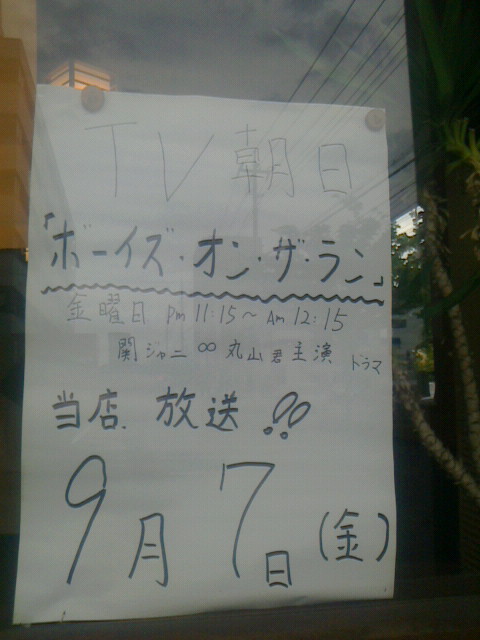 TV朝日
「ボーイズ・オン・ザ・ラン」
金曜日 Pm 11:15〜Am 12:15
関ジャニ∞丸山君主演 ドラマ
当店. 放送!!
9月7日(金)